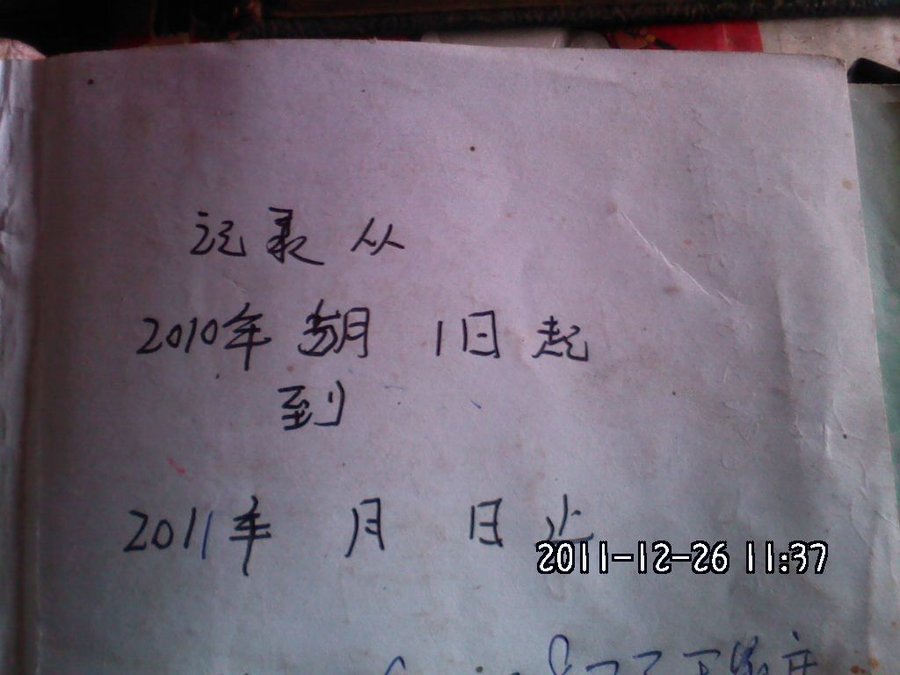 记录从
2010年 月 1日起
到
2011年 月 日止
2011-12-26 11:37